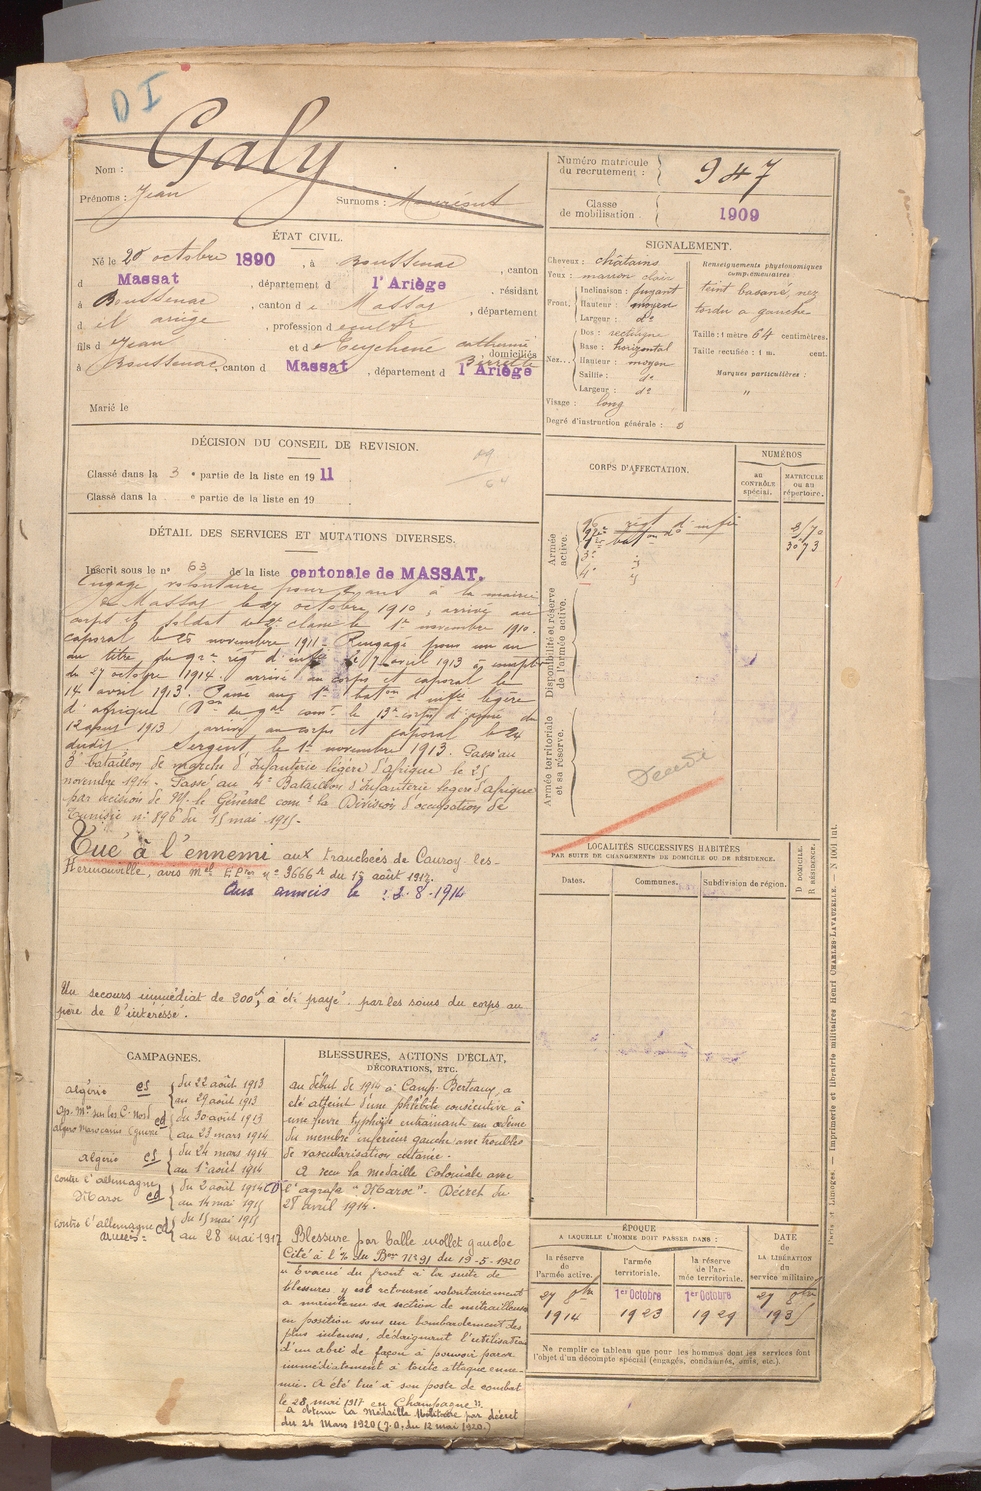 D I
Nom : Galy
Prénoms : Jean Surnoms :
Numéro matricule du recrutement : 947
Classe de mobilisation 1909
ÉTAT CIVIL.
Né le 20 octobre 1890, à Boussenac, canton
d Massat, département d l'Ariège, résidant
à Boussenac, canton de Massat, département
d el ariège, profession de cultr
fils d Jean et de Eychené catherine, domiciliés
à Boussenac, canton d Massat, département d l'Ariège
Marié le
SIGNALEMENT.
Cheveux : châtains
Yeux : marron clair
Front. Inclinaison : fuyant
Hauteur : moyen
Largeur : do
Nez. Dos : rectiligne
Base : horizontal
Hauteur : moyen
Saillie : do
Largeur : do
Visage : long
Degré d'instruction générale : 2
Renseignements physionomiques complémentaires
teint basané, nez
tordu a gauche
Taille : 1 mètre 64 centimètres.
Taille rectifiée : 1 m. cent.
Marques particulières :
"
DÉCISION DU CONSEIL DE REVISION.
Classé dans la 3 e partie de la liste en 1911
Classé dans la e partie de la liste en 19
09
64
DÉTAIL DES SERVICES ET MUTATIONS DIVERSES.
Inscrit sous le no 63 de la liste cantonale de MASSAT.
Engagé volontaire pour 4 ans à la mairie
de Massat le 27 octobre 1910, arrivé au
corps et soldat de 2e classe le 1er novembre 1910.
caporal le 25 novembre 1911. Rengagé pour un an
au titre du 92e régt d'infie le 7 avril 1913 à compter
du 27 octobre 1914. arrivé au corps et caporal le
14 avril 1913. Passé au 1er baton d'infie légère
d'afrique Don du gal comt le 13e corps d'armée du
12 aout 1913, arrivé au corps et caporal le 24
dudit, Sergent le 1er novembre 1913. Passé au
3e bataillon de marche d'Infanterie légère d'afrique le 25
novembre 1914. Passé au 4e Bataillon d'Infanterie légère d'afrique
par décision de M. le Général comt la Division d'occupation de
Tunisie no 896 du 15 mai 1915.
Tué à l'ennemi aux tranchées de Cauroy-les-
Hermonville, avis mel no 3666 du 12 août 1917.
Aux armées le 2-8-1914
Un secours immédiat de 200f, a été payé par les soins du corps au
père de l'intéressé.
CORPS D'AFFECTATION.
NUMÉROS
au contrôle spécial.
matricule ou au répertoire.
Armée active.
régt d'infie
baton do
3073
Disponibilité et réserve de l'armée active.
Armée territoriale et sa réserve.
Décédé
LOCALITÉS SUCCESSIVES HABITÉES
PAR SUITE DE CHANGEMENTS DE DOMICILE OU DE RÉSIDENCE.
Dates. Communes. Subdivision de région.
D. DOMICILE. R. RÉSIDENCE.
CAMPAGNES.
algérie es du 22 août 1913
au 29 août 1913
Op. Mres sur les C. Nord
algéro Marocains (guerre) cd du 30 août 1913
au 23 mars 1914
algérie es du 24 mars 1914
au 1er août 1914
contre l'allemagne
Maroc cd du 2 août 1914 CD
au 14 mai 1915
contre l'allemagne
armées cd du 15 mai 1915
au 28 mai 1917
BLESSURES, ACTIONS D'ÉCLAT,
DÉCORATIONS, ETC.
au début de 1914 à Camp-Berteaux, a
été atteint d'une phlébite consécutive à
une fièvre typhoïde entraînant un œdème
du membre inférieur gauche avec troubles
de vascularisation cutanée.
A reçu la médaille Coloniale avec
l'agrafe "Maroc". Décret du
28 avril 1914.
Blessure par balle mollet gauche
Cité à l'% du Bon no 91 du 19-5-1920
"Evacué du front à la suite de
blessures, y est retourné volontairement
a maintenu sa section de mitrailleuse
en position sous un bombardement des
plus intenses, dédaignant l'utilisation
d'un abri de façon à pouvoir parer
immédiatement à toute attaque enne-
mie. A été tué à son poste de combat
le 28 mai 1917 en Champagne".
a obtenu la Médaille Militaire par décret
du 24 Mars 1920 (J.O. du 12 mai 1920.)
ÉPOQUE
A LAQUELLE L'HOMME DOIT PASSER DANS :
la réserve de l'armée active. l'armée territoriale. la réserve de l'armée territoriale.
DATE de la LIBÉRATION du service militaire.
27 8bre 1914
1er Octobre 1923
1er Octobre 1929
27 8bre 1935
Ne remplir ce tableau que pour les hommes dont les services font
l'objet d'un décompte spécial (engagés, condamnés, omis, etc.).
Paris et Limoges. — Imprimerie et librairie militaires Henri CHARLES-LAVAUZELLE. — N 1001 int.